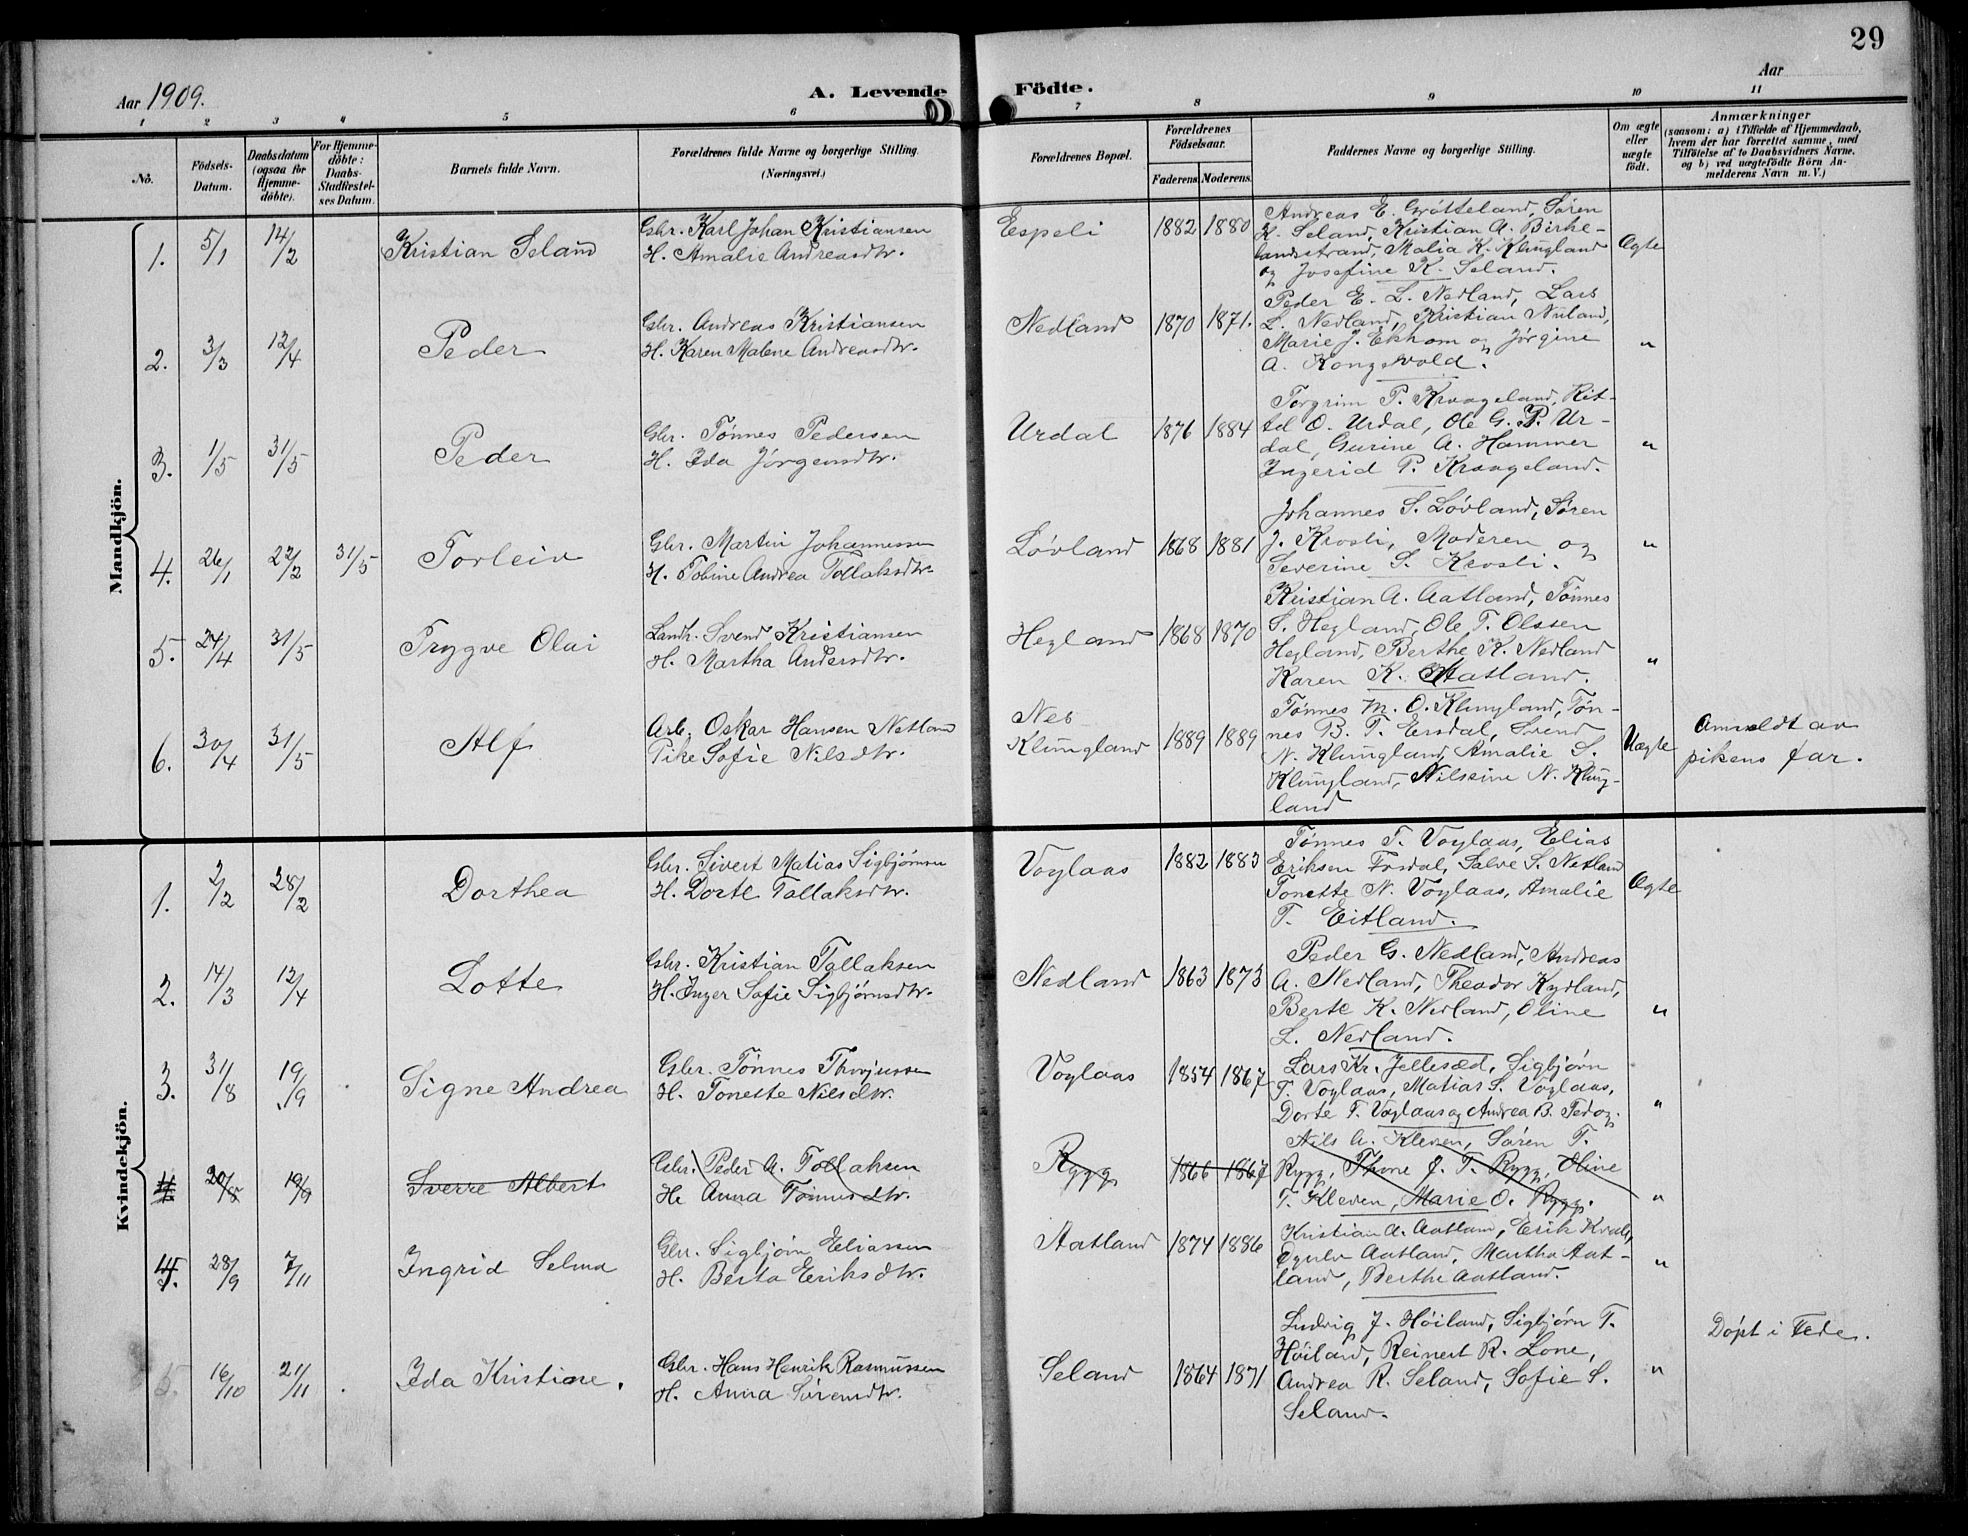 29
Aar 1909.
A. Levende Födte.
Aar
1 2 3 4 5 6 7 8 9 10 11
No.
Födsels-Datum.
Daabsdatum (ogsaa for Hjemme-döbte).
For Hjemme-döbte: Daabs-Stadfæstel-ses Datum.
Barnets fulde Navn.
Forældrenes fulde Navne og borgerlige Stilling.
(Næringsvei.)
Forældrenes Bopæl.
Forældrenes Födselsaar.
Faderens. Moderens.
Faddernes Navne og borgerlige Stilling.
Om ægte eller uægte födt.
Anmærkninger
(saasom: a) i Tilfælde af Hjemmedaab, hvem der har forrettet samme, med Tilföielse af to Daabsvidners Navne, og b) ved uægtefödte Börn An-melderens Navn m. V.)
Mandkjön.
1. 5/1 14/2 Kristian Seland
Gbr. Karl Johan Kristiansen
H. Amalie Andreasdtr.
Espeli 1882 1880
Andreas E. Grøtteland, Søren
K. Seland, Kristian A. Birke-
landsstrand, Malia K. Klungland
og Josefine K. Seland.
Ægte
2. 3/3 12/4 Peder
Gbr. Andreas Kristiansen
H. Karen Malene Andreasdtr.
Nedland 1870 1871.
Peder E. L. Nedland, Lars
L. Nedland, Kristian Nuland,
Marie J. Ekhom og Jørgine
A. Kongsvold.
"
3. 1/5 31/5 Peder
Gbr. Tønnes Pedersen
H. Ida Jørgensdtr.
Urdal 1876 1884
Torgrim P. Kraageland, Kit-
tel O. Urdal, Ole G. P. Ur-
dal, Gurine A. Hammer
Ingerid P. Kraageland.
"
4. 26/1 22/2 31/5 Torleiv
Gbr. Martin Johannessen
H. Tobine Andrea Tollaksdtr.
Løvland 1868 1881
Johannes S. Løvland, Søren
J. Krosli, Moderen og
Severine S. Krosli.
"
5. 24/4 31/5 Trygve Olai
Landh. Svend Kristiansen
H. Martha Andersdtr.
Hegland 1868 1870
Kristian A. Aatland, Tønnes
S. Hegland, Ole T. Olssen
Hegland, Berthe K. Nedland
Karen K. Aatland.
"
6. 30/4 31/5 Alf
Arb. Oskar Hansen Netland
Pike Sofie Nilsdtr.
Nes
Klungland 1889 1889
Tønnes M. O. Klungland, Tøn-
nes B. T. Ersdal, Svend
N. Klungland, Amalie S.
Klungland, Nilsine N. Klung-
land
Uægte
Anmeldt av
pikens far.
Kvindekjön.
1. 2/2 28/2 Dorthea
Gbr. Sivert Matias Sigbjørnsen
H. Dorte Tallaksdtr.
Voglaas 1882 1883
Tønnes T. Voglaas, Elias
Eriksen Fosdal, Salve S. Netland
Tonette N. Voglaas, Amalie
T. Eitland.
Ægte
2. 14/3 12/4 Lotte
Gbr. Kristian Tallaksen
H. Inger Sofie Sigbjørnsdtr.
Nedland 1863 1873
Peder G. Nedland, Andreas
A. Nedland, Theodor Kydland,
Berte K. Nedland, Oline
L. Nedland.
"
3. 31/8 19/9 Signe Andrea
Gbr. Tønnes
H. Tonette Nilsdtr.
Voglaas 1854 1867
Lars Kr. Jellesæd, Sigbjørn
T. Voglaas, Matias S. Voglaas,
Dorte T. Voglaas og Andrea B.
"
4. 20/8 19/9 Sverre Albert
Gbr. Peder A. Tollaksen
H. Anna Tønnesdtr.
Rygg 1866 1867
Nils A. Kleven, Søren T.
Rygg, Thone J. T. Rygg, Oline
T. Kleven, Marie O. Rygg.
"
4. 28/9 7/11 Ingrid Selma
Gbr. Sigbjørn Eliassen
H. Berta Eriksdtr.
Aatland 1874 1886
Kristian A. Aatland, Erik
Aatland, Martha Aat-
land, Berthe Aatland.
"
5. 16/10 21/11 Ida Kristine.
Gbr. Hans Henrik Rasmussen
H. Anna Sørensdtr.
Seland 1864 1871
Ludvig J. Høiland, Sigbjørn T.
Høiland, Reinert R. Lone,
Andrea R. Seland, Sofie S.
Seland.
"
Døpt i Fede.